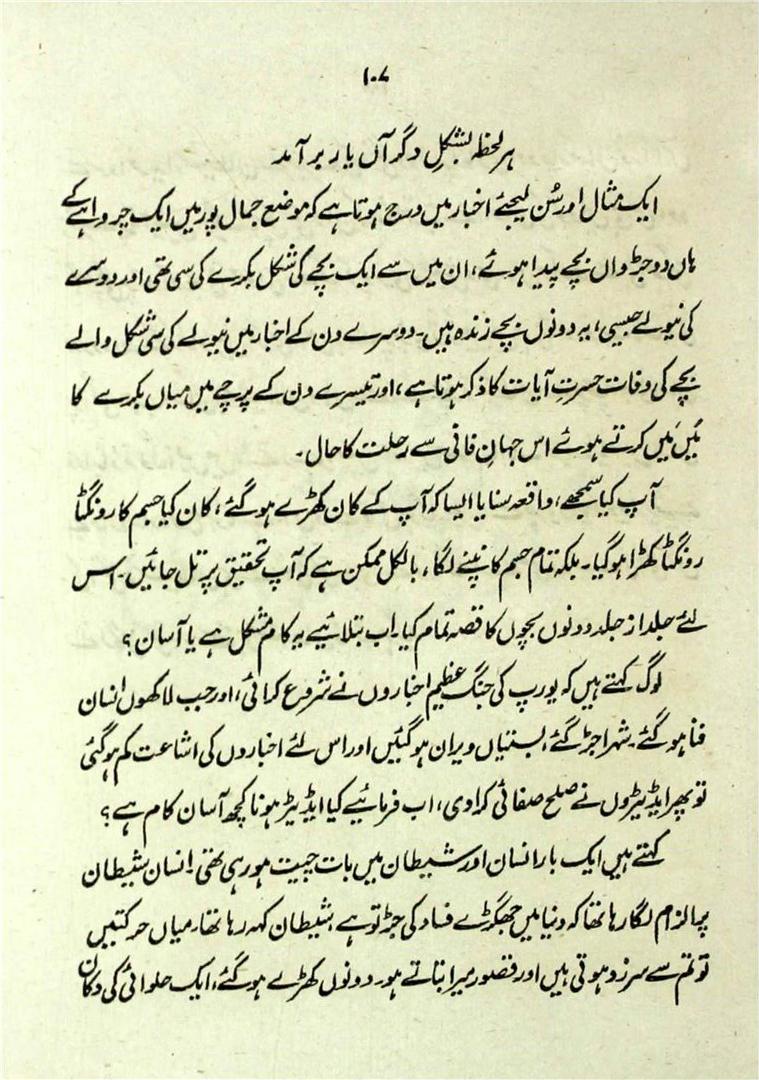 ۱۰۷
ہر لحظہ بشکلِ دگر آں یار برآمد
ایک مثال اور سُن لیجئے اخبار میں درج ہوتا ہے کہ موضع جمال پور میں ایک چرواہے کے
ہاں دو جڑواں بچے پیدا ہوئے، ان میں سے ایک بچے کی شکل بکرے کی سی تھی اور دوسرے
کی نیولے جیسی، یہ دونوں بچے زندہ ہیں۔ دوسرے دن کے اخبار میں نیولے کی سی شکل والے
بچے کی وفات حسرتِ آیات کا ذکر ہوتا ہے، اور تیسرے دن کے پرچے میں میاں بکرے کا
مَیں مَیں کرتے ہوئے اس جہانِ فانی سے رحلت کا حال۔
آپ کیا سمجھے، واقعہ سنایا ایسا کہ آپ کے کان کھڑے ہو گئے، کان کیا جسم کا رونگٹا
رونگٹا کھڑا ہو گیا۔ بلکہ تمام جسم کانپنے لگا، بالکل ممکن ہے کہ آپ تحقیق پر تل جائیں۔ اس
لئے جلد از جلد دونوں بچوں کا قصہ تمام کیا۔ اب بتلائیے یہ کام مشکل ہے یا آسان؟
لوگ کہتے ہیں کہ یورپ کی جنگ عظیم اخباروں نے شروع کرائی، اور جب لاکھوں انسان
فنا ہو گئے۔ شہر اجڑ گئے، بستیاں ویران ہو گئیں اور اس لئے اخباروں کی اشاعت کم ہو گئی
تو پھر ایڈیٹروں نے صلح صفائی کرا دی، اب فرمائیے کیا ایڈیٹر ہونا کچھ آسان کام ہے؟
کہتے ہیں ایک بار انسان اور شیطان میں بات چیت ہو رہی تھی۔ انسان شیطان
پر الزام لگا رہا تھا کہ دنیا میں جھگڑے فساد کی جڑ تو ہے، شیطان کہہ رہا تھا، میاں حرکتیں
تو تم سے سرزد ہوتی ہیں اور قصور میرا بتاتے ہو۔ دونوں کھڑے ہو گئے، ایک حلوائی کی دکان